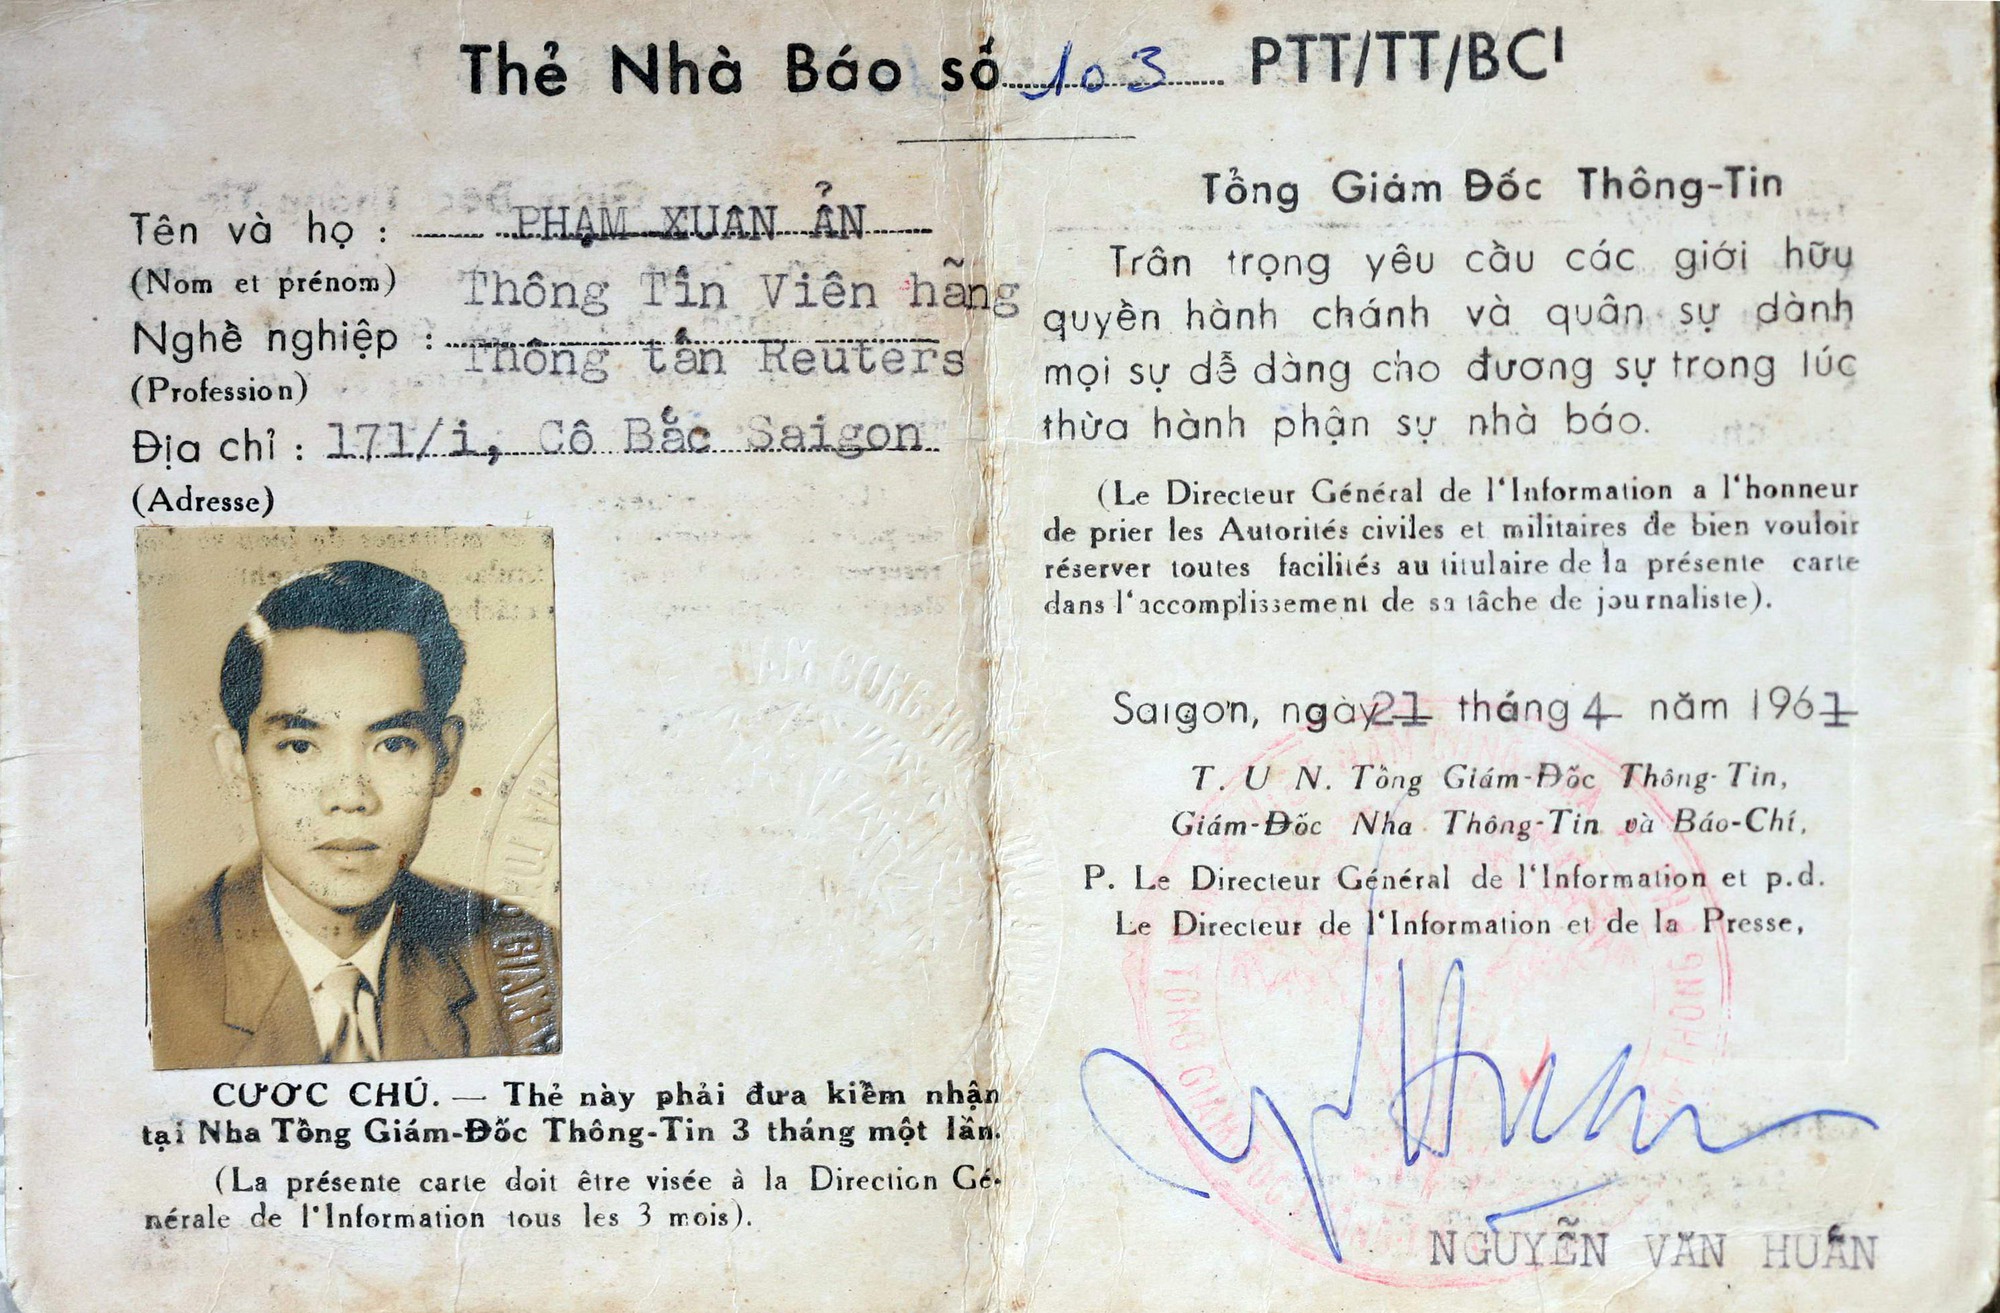 Thẻ Nhà Báo số 103 PTT/TT/BCI
Tên và họ : PHẠM XUAN ẢN
(Nom et prénom)
Thông Tín Viên hãng
Nghề nghiệp :
Thông tấn Reuters
(Profession)
Địa chỉ : 171/i, Cô Bắc Saigon
(Adresse)
CƯỚC CHÚ. — Thẻ này phải đưa kiểm nhận
tại Nha Tổng Giám-Đốc Thông-Tin 3 tháng một lần.
(La présente carte doit être visée à la Direction Gé-
nérale de l'Information tous les 3 mois).
Tổng Giám Đốc Thông-Tin
Trân trọng yêu cầu các giới hữu
quyền hành chánh và quân sự dành
mọi sự dễ dàng cho đương sự trong lúc
thừa hành phận sự nhà báo.
(Le Directeur Général de l'Information a l'honneur
de prier les Autorités civiles et militaires de bien vouloir
réserver toutes facilités au titulaire de la présente carte
dans l'accomplissement de sa tâche de journaliste).
Saigon, ngày 21 tháng 4 năm 1961
T. U N. Tổng Giám-Đốc Thông-Tin,
Giám-Đốc Nha Thông-Tin và Báo-Chí,
P. Le Directeur Général de l'Information et p.d.
Le Directeur de l'Information et de la Presse,
NGUYỄN VĂN HUẤN